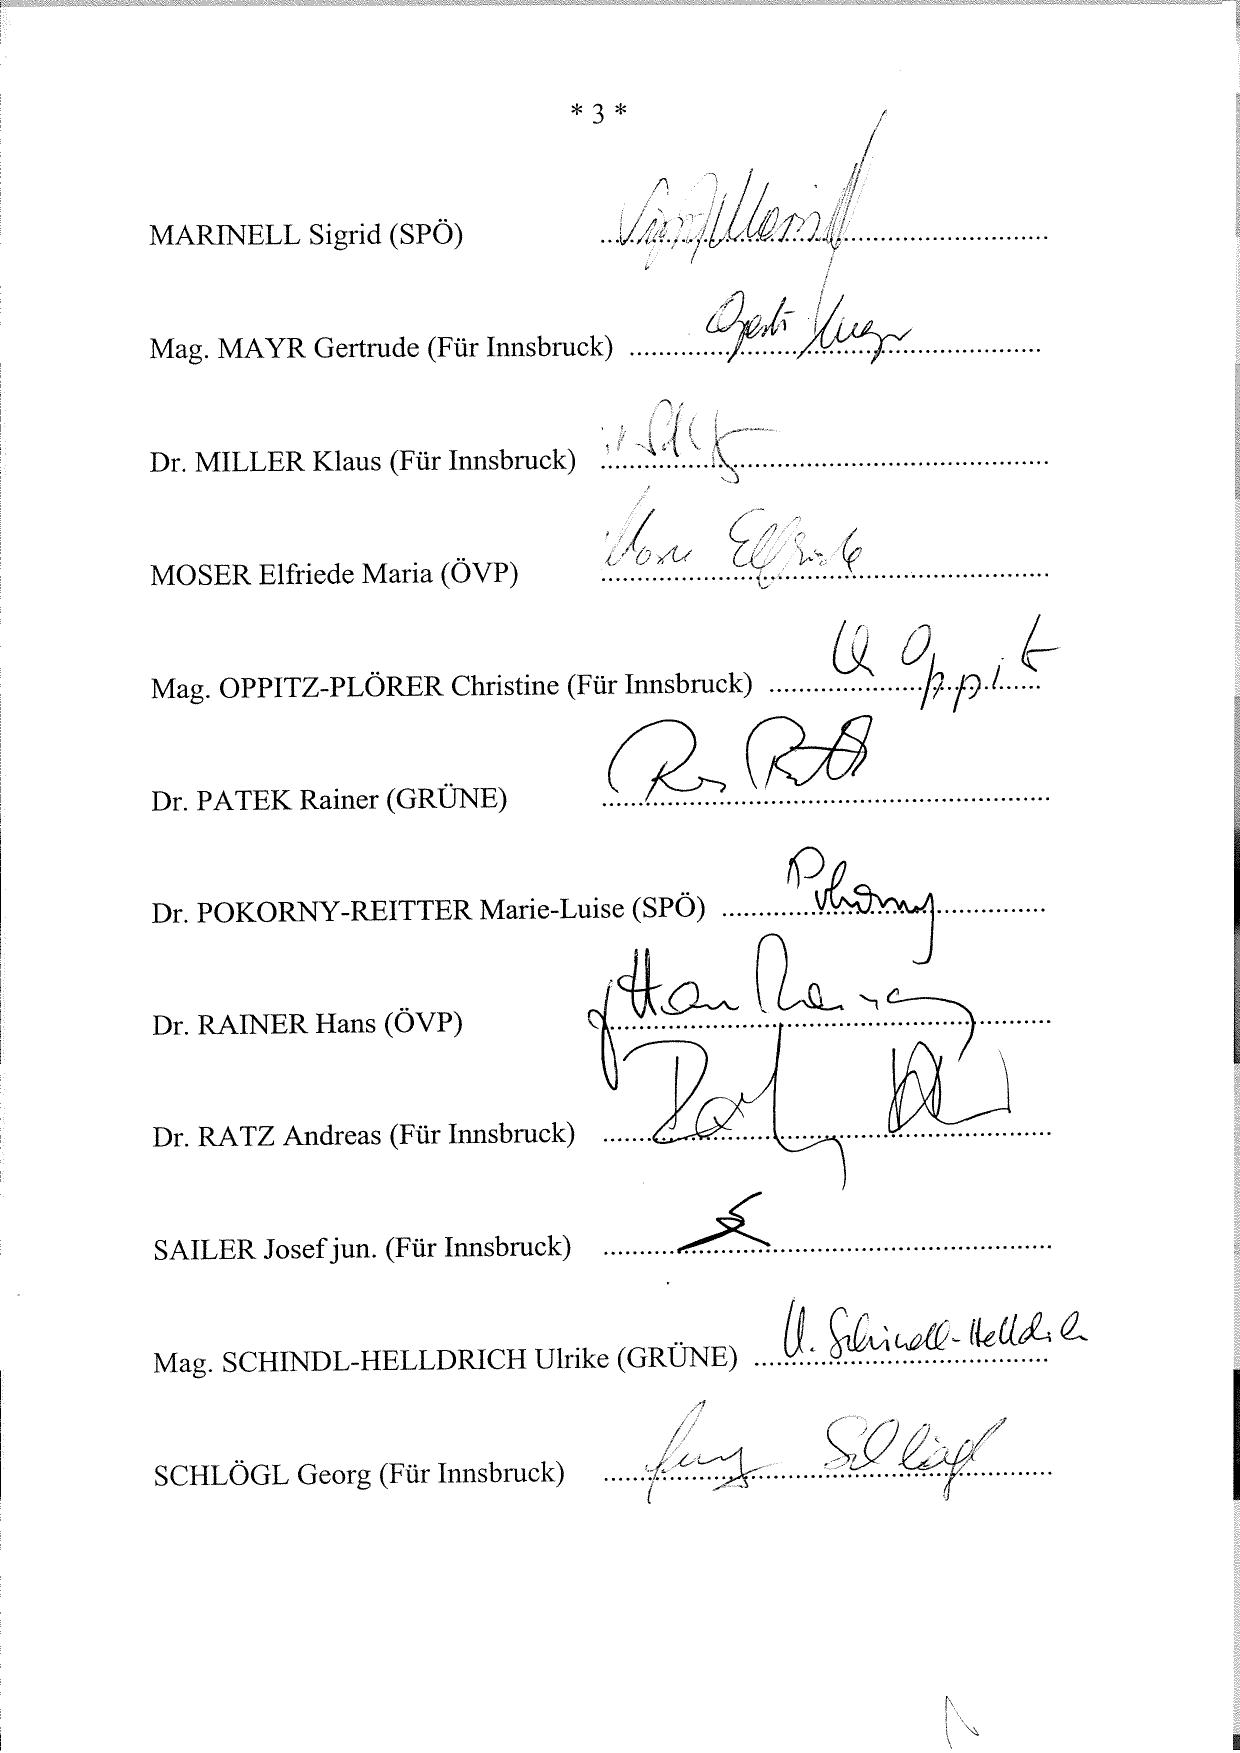 * 3 *
MARINELL Sigrid (SPÖ)
Mag. MAYR Gertrude (Für Innsbruck)
Dr. MILLER Klaus (Für Innsbruck)
MOSER Elfriede Maria (ÖVP)
Elfriede
Mag. OPPITZ-PLÖRER Christine (Für Innsbruck)
Oppit
Dr. PATEK Rainer (GRÜNE)
Dr. POKORNY-REITTER Marie-Luise (SPÖ)
Pokorny
Dr. RAINER Hans (ÖVP)
Dr. RATZ Andreas (Für Innsbruck)
SAILER Josef jun. (Für Innsbruck)
Mag. SCHINDL-HELLDRICH Ulrike (GRÜNE)
U. Schindl-Helldrich
SCHLÖGL Georg (Für Innsbruck)
Schlögl